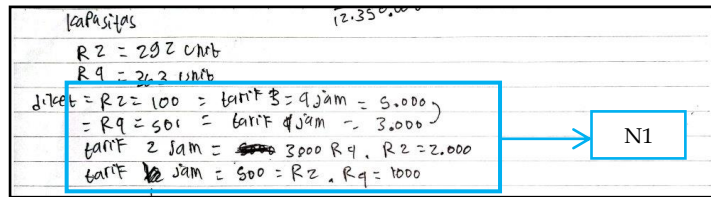 12.350.000
Kapasitas
R2 = 292 Unit
R4 = 363 Unit
diket = R2 = 100 = tarif 3 = 4 jam = 5.000
= R4 = 501 = tarif 4 jam = 3.000
tarif 2 jam = 3000 R4. R2 = 2.000
tarif jam = 500 = R2. R4 = 1000
N1